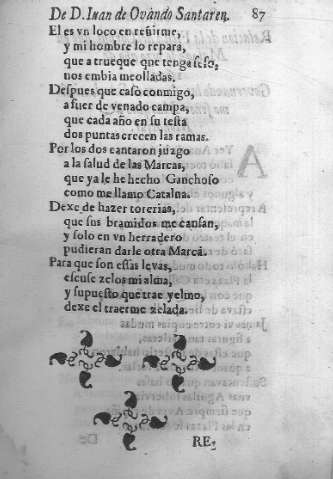 De D. Iuan de Ovando Santaren. 87
El es vn loco en reñirme,
y mi hombre lo repara,
que a trueque que tenga seso,
nos embia meolladas.
Despues que casò conmigo,
a fuer de venado campa,
que cada año en su testa
dos puntas crecen las ramas.
Por los dos cantaron juzgo
a la salud de las Marcas,
que ya le he hecho Ganchoso
como me llamo Catalna.
Dexe de hazer torerias,
que sus bramidos me cansan,
y solo en vn herradero
pudieran darle otra Marca.
Para que son essas levas,
escuse zelos mi alma,
y supuesto que trae yelmo,
dexe el traerme zelada.
RE-